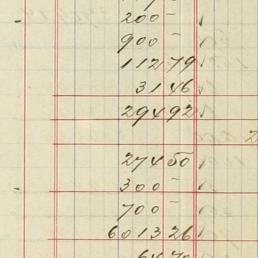 200 –
900 –
112 79
31 46
294 92
274 50
300 –
700 –
6013 26
64 70